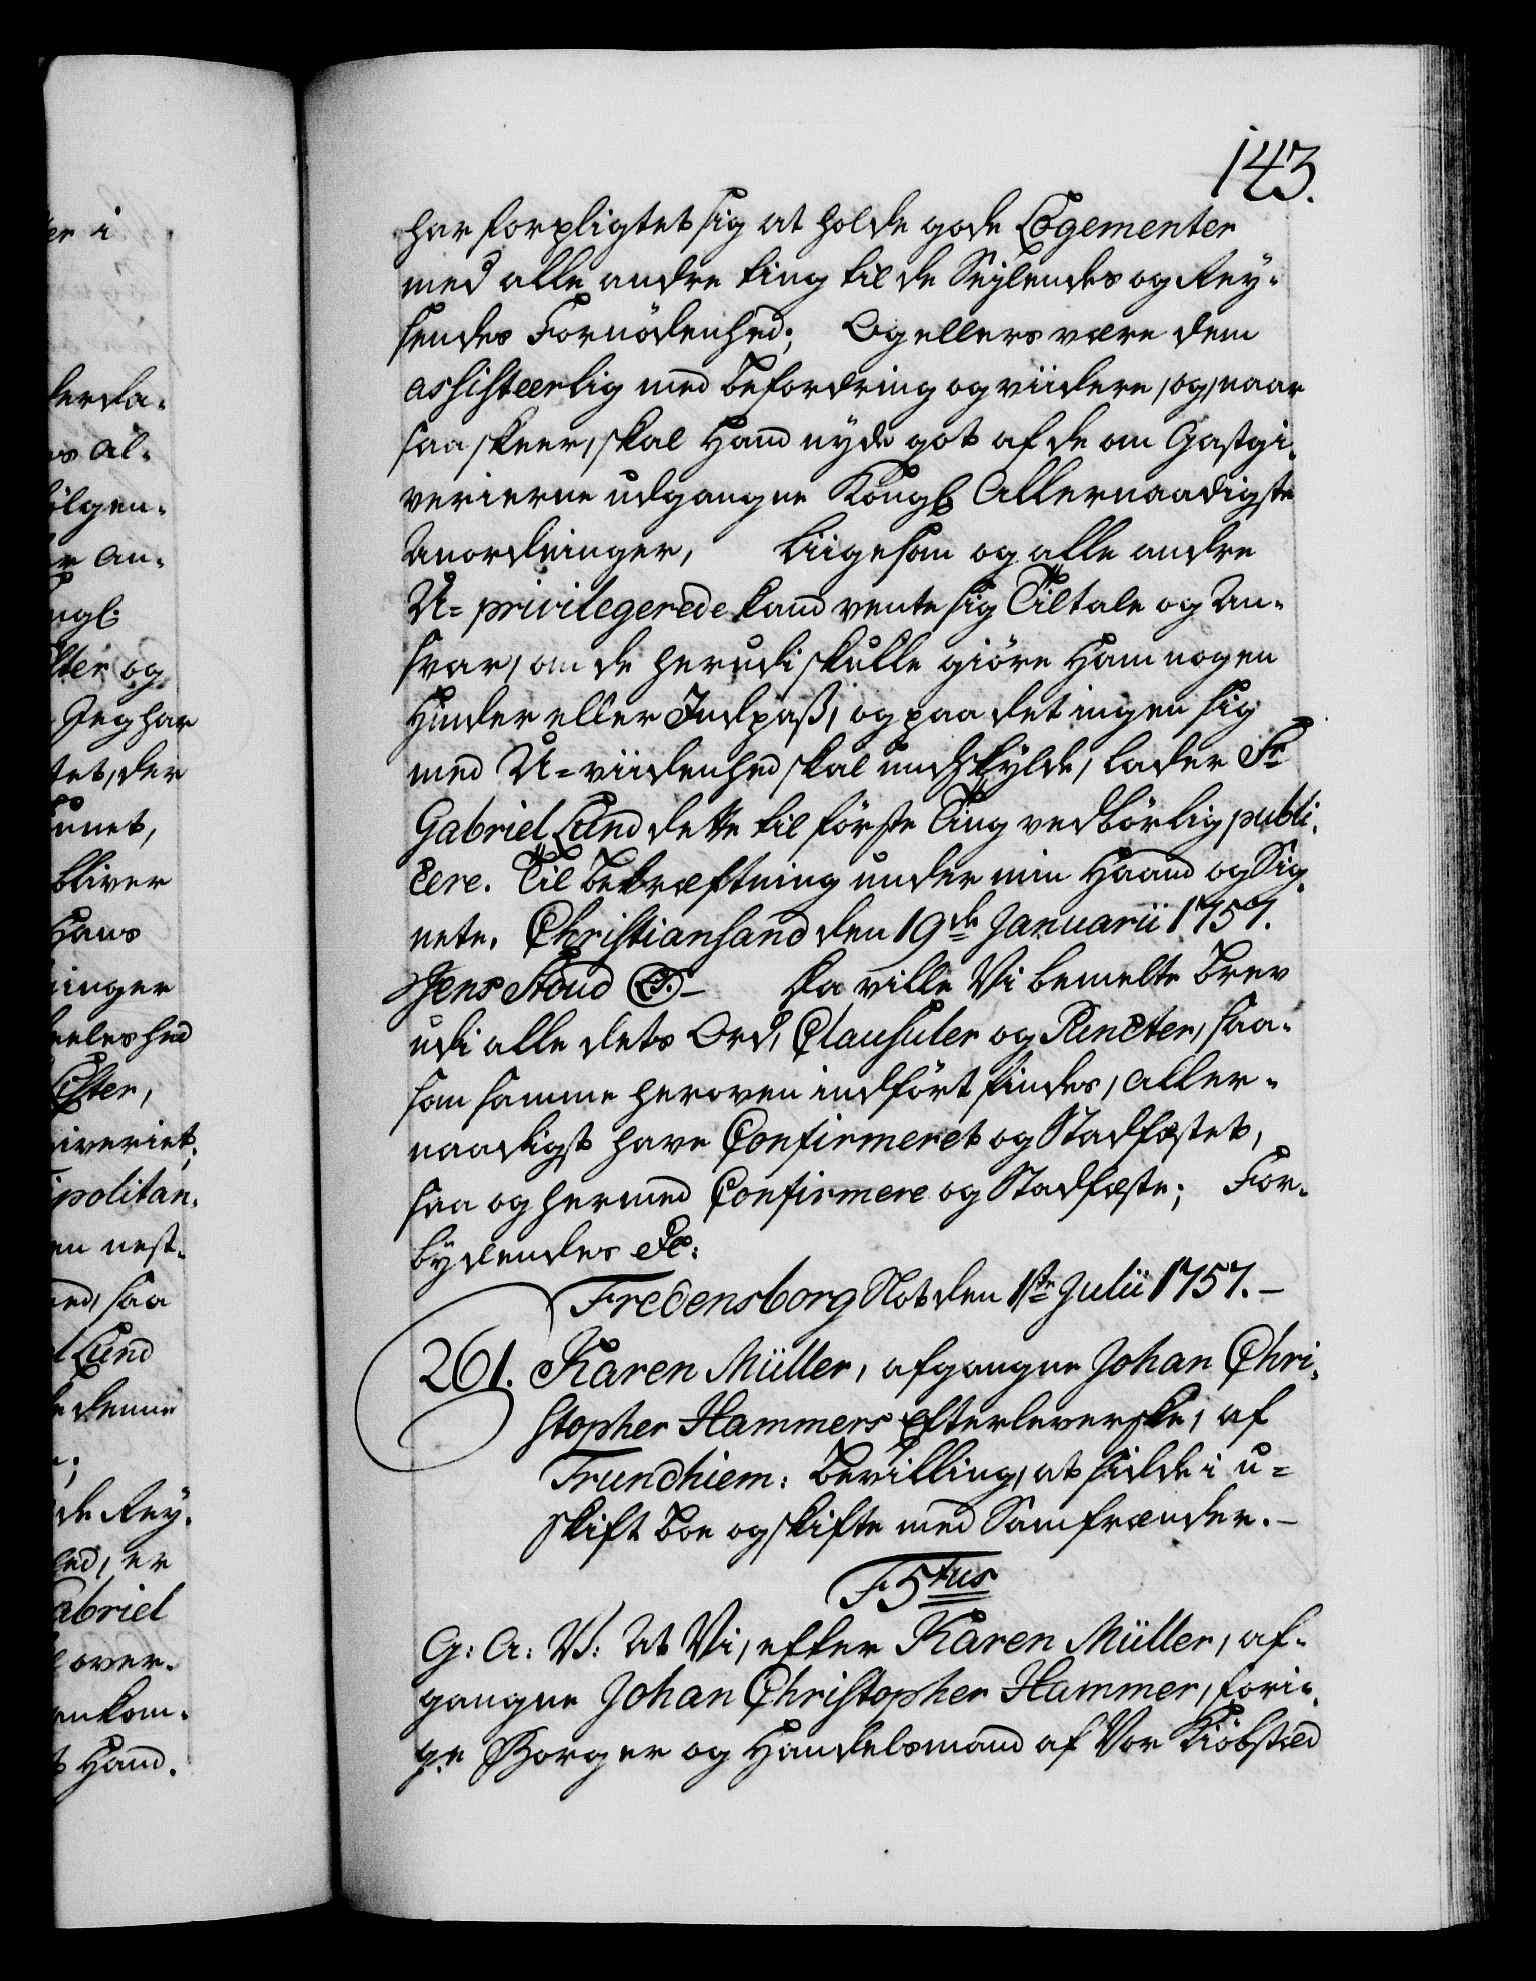 143.
har forpligtet sig at holde gode Logementer
med alle andre ting til de Seylendes og Rey-
sendes Fornödenhed; Og ellers være dem
assisteerlig med befordring og viidere, og, naar
saa skeer, skal Hand nyde got af de om Gastgi-
verierne udgangne Kongl Allernaadigste
Anordninger, Liigesom og alle andre
U=privilegerede kand vente sig Tiltale og An-
svar, om de herudi skulle giöre Ham nogen
Hinder eller Indpaß, og paa det ingen sig
med U=viidenhed skal undskylde, lader Sr
Gabriel Lund dette til förste Ting vedbörlig publi-
cere. Til Bekræftning under min Haand og Sig-
nete. Christiansand den 19de Januarii 1757.
Jens Stoud (L.S.) – Da ville Vi bemelte Brev
udi alle dets Ord, Clausuler og Puncter, saa-
som samme heroven indfört findes, Aller-
naadigst have Confirmeret og Stadfæstet,
saa og hermed Confirmere og Stadfæste; For-
bydendes &c:
Fredensborg Slot den 1ste Julii 1757. –
261. Karen Müller, afgangne Johan Chri-
stopher Hammers Efterleverske, af
Trundhiem: Bevilling, at sidde i u=
skift Boe og skifte med Samfrænder. –
F5tus
G: A: V: At Vi, efter Karen Müller, af-
gangne Johan Christopher Hammer, forri-
ge Borger og Handelsmand af Vor Kiöbsted
er i
derda-
vs Al-
ölgen-
er An-
ngl:
lter og
Jeg har
tet, der
unet,
bliver
Hans
inger
eeleshed
Lister,
iveriet;
politan-
en nest-
ed, saa
l Lund
denne
de Rey-
ed, er
abriel
over-
ankom-
Hand.